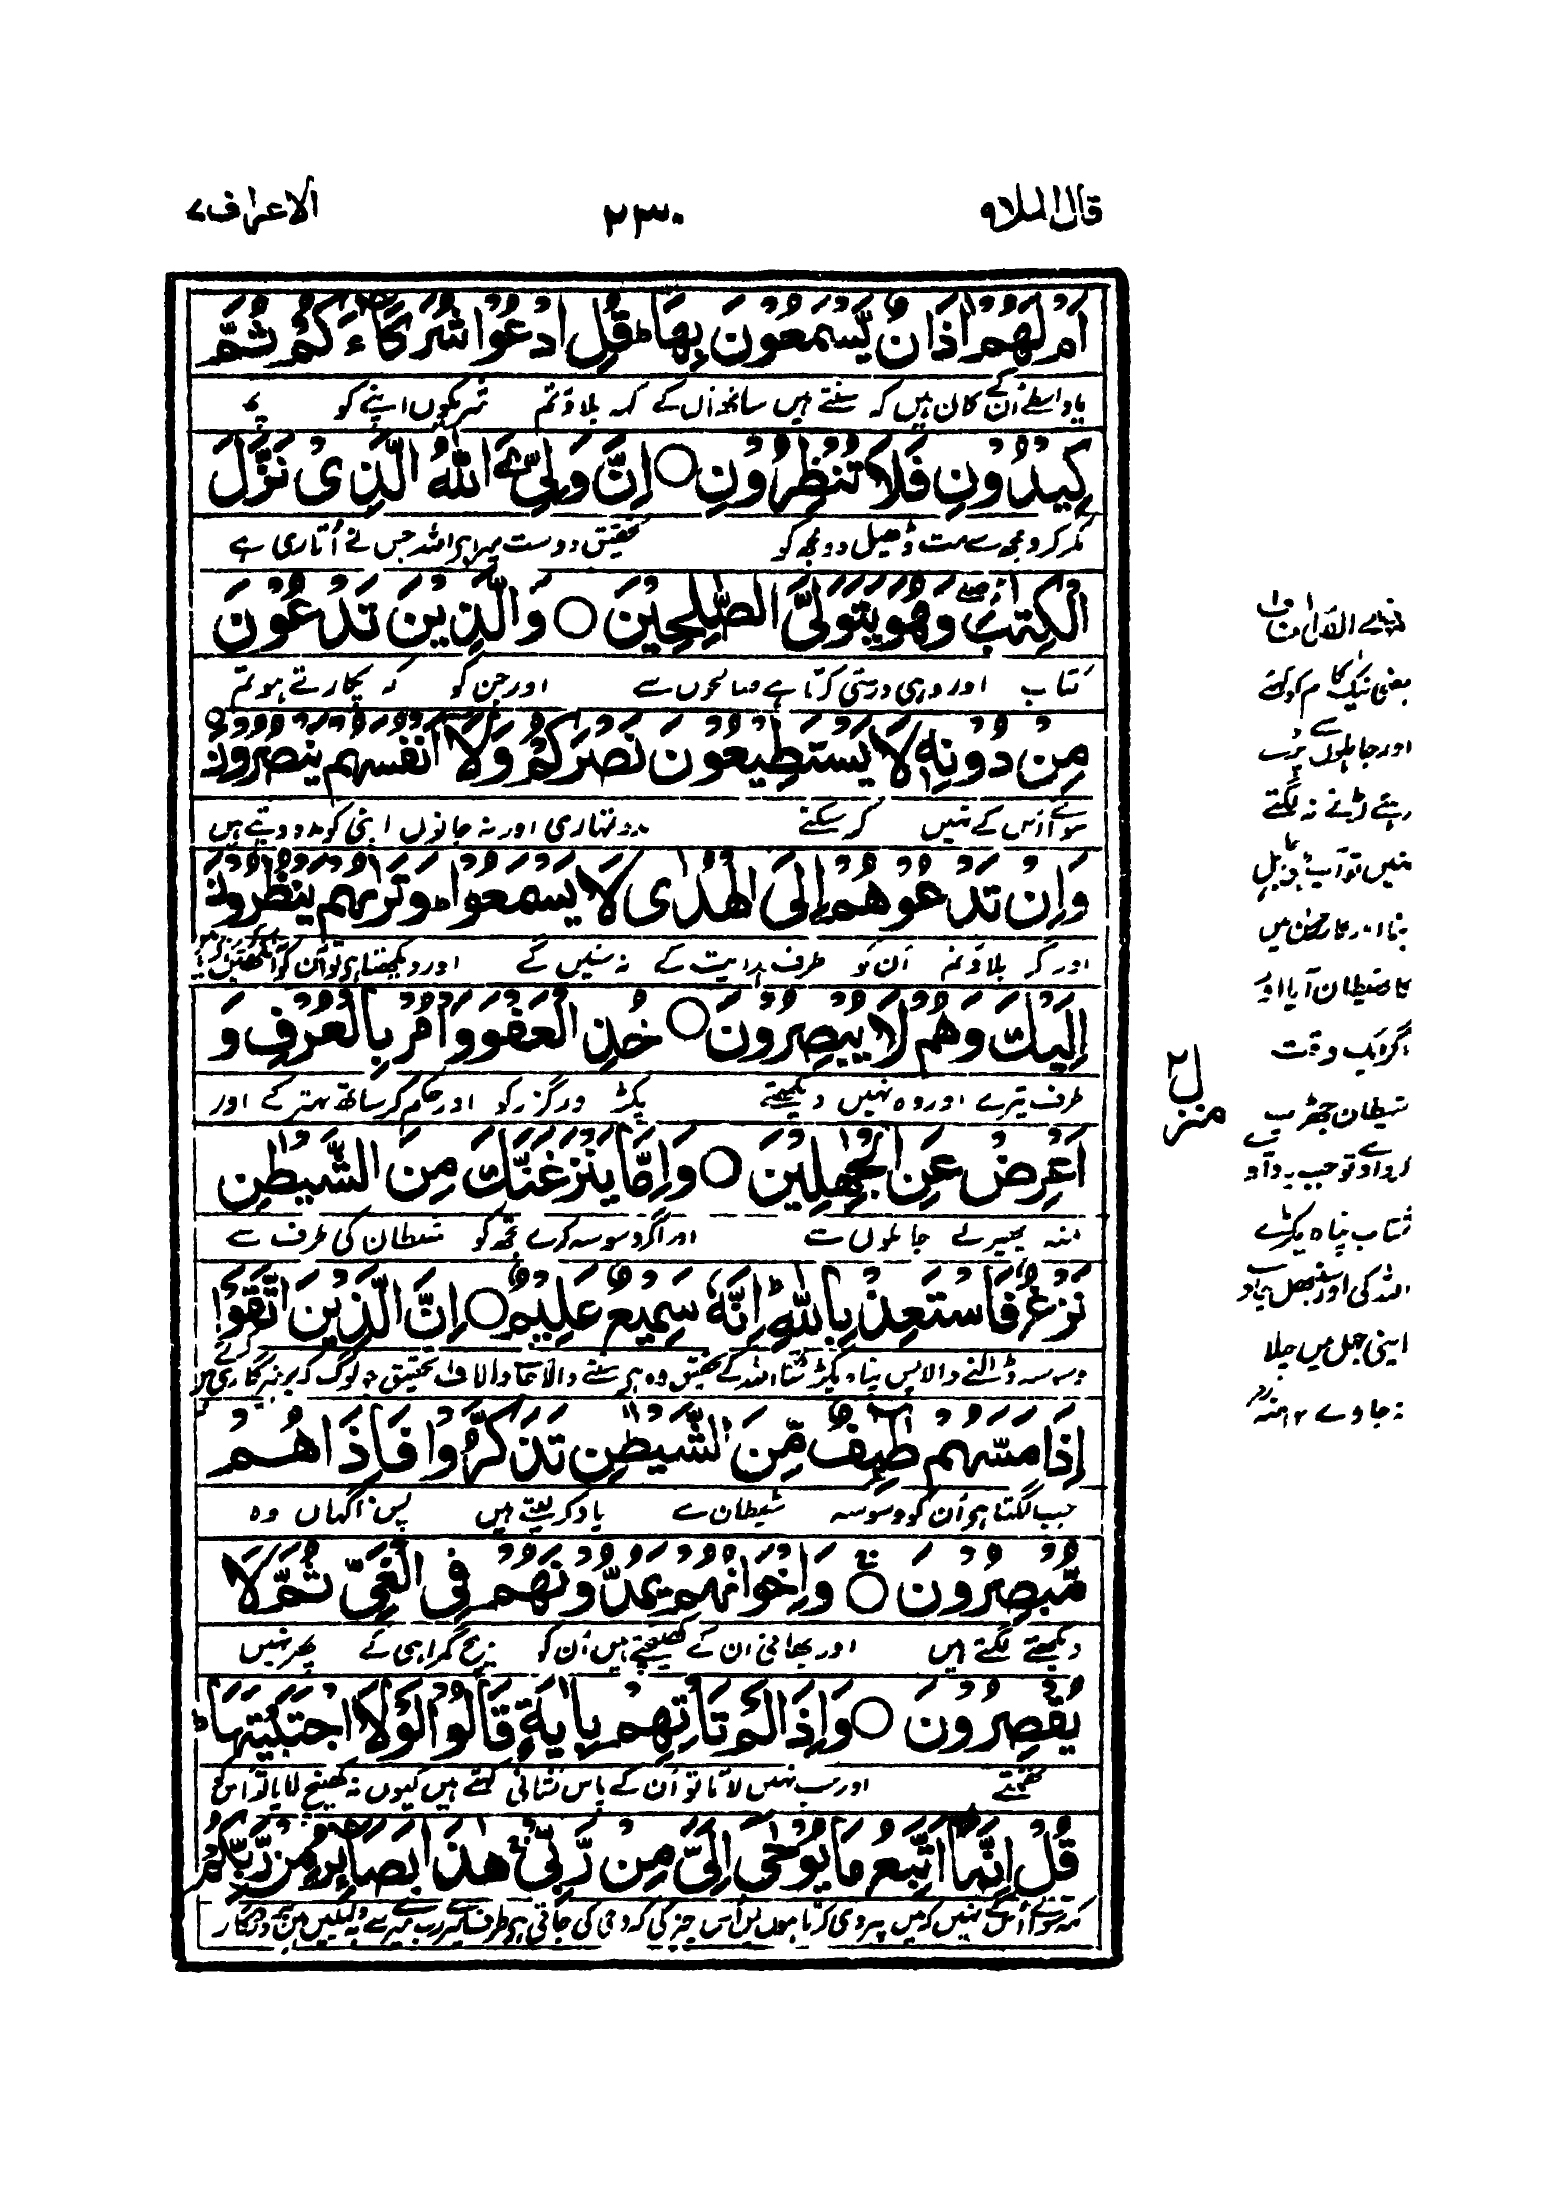 قال الملا ۹
۲۳۰
الاعراف ۷
اَمْ لَهُمْ اٰذَانٌ يَّسْمَعُوْنَ بِهَا ؕ قُلِ ادْعُوْا شُرَكَآءَكُمْ ثُمَّ
یا واسطے ان کے کان ہیں کہ سنتے ہیں ساتھ ان کے کہہ بلاؤ تم شریکوں اپنے کو پھر
كِيْدُوْنِ فَلَا تُنْظِرُوْنِ ○ اِنَّ وَلِيَِّۧ اللّٰهُ الَّذِيْ نَزَّلَ
مکر کرو مجھ سے مت ڈھیل دو مجھ کو تحقیق دوست میرا ہی اللہ جس نے اُتاری ہے
الْكِتٰبَ ۖ وَهُوَ يَتَوَلَّى الصّٰلِحِيْنَ ○ وَالَّذِيْنَ تَدْعُوْنَ
کتاب اور وہی دوستی کرتا ہے صالحوں سے اور جن کو کہ پکارتے ہو تم
مِنْ دُوْنِهٖ لَا يَسْتَطِيْعُوْنَ نَصْرَكُمْ وَلَآ اَنْفُسَهُمْ يَنْصُرُوْنَ ○
سوائے اُس کے نہیں کر سکتے مدد تمہاری اور نہ جانوں اپنی کو مدد دیتے ہیں
وَاِنْ تَدْعُوْهُمْ اِلَى الْهُدٰى لَا يَسْمَعُوْا ؕ وَتَرٰىهُمْ يَنْظُرُوْنَ
اور گر بلاؤ تم اُن کو طرف ہدایت کے نہ سنیں گے اور دیکھتا ہی تو اُن کو
اِلَيْكَ وَهُمْ لَا يُبْصِرُوْنَ ○ خُذِ الْعَفْوَ وَاْمُرْ بِالْعُرْفِ وَ
طرف تیرے اور وہ نہیں دیکھتے پکڑ درگزر کو اور حکم کر ساتھ بہتر کے اور
اَعْرِضْ عَنِ الْجٰهِلِيْنَ ○ وَاِمَّا يَنْزَغَنَّكَ مِنَ الشَّيْطٰنِ
منہ پھیر لے جاہلوں سے اور اگر وسوسہ کرے تجھ کو شیطان کی طرف سے
نَزْغٌ فَاسْتَعِذْ بِاللّٰهِ ؕ اِنَّهٗ سَمِيْعٌ عَلِيْمٌ ○ اِنَّ الَّذِيْنَ اتَّقَوْا
وسوسہ ڈالنے والا پس پناہ پکڑ ساتھ اللہ کے تحقیق وہ ہی سننے والا جاننے والا تحقیق جو لوگ کہ پرہیزگاری
اِذَا مَسَّهُمْ طٰٓئِفٌ مِّنَ الشَّيْطٰنِ تَذَكَّرُوْا فَاِذَا هُمْ
جب لگتا ہی اُن کو وسوسہ شیطان سے یاد کر لیتے ہیں پس ناگہاں وہ
مُّبْصِرُوْنَ ○ وَاِخْوَانُهُمْ يَمُدُّوْنَهُمْ فِي الْغَيِّ ثُمَّ لَا
دیکھنے لگتے ہیں اور بھائی ان کے کھینچتے ہیں اُن کو بیچ گمراہی کے پھر نہیں
يُقْصِرُوْنَ ○ وَاِذَا لَمْ تَاْتِهِمْ بِاٰيَةٍ قَالُوْا لَوْلَا اجْتَبَيْتَهَا ؕ
تھمتے اور جب نہیں لاتا تو اُن کے پاس نشانی کہتے ہیں کیوں نہ کھینچ لایا تو اس کو
قُلْ اِنَّمَآ اَتَّبِعُ مَا يُوْحٰٓى اِلَيَّ مِنْ رَّبِّيْ ۚ هٰذَا بَصَآئِرُ مِنْ رَّبِّكُمْ
کہہ سوائے اُس کے نہیں کہ میں پیروی کرتا ہوں اُس چیز کی کہ وحی کی جاتی ہی طرف میرے رب میرے سے یہ دلیلیں ہیں
منزل ۲
یعنی نیک کام کو کہے
اور جاہلوں
اگر ایک وقت
شیطان چھیڑ
شتاب پناہ پکڑے
اللہ کی اور
اپنی جہل میں چلا
نہ جاوے ۱۲ منہ